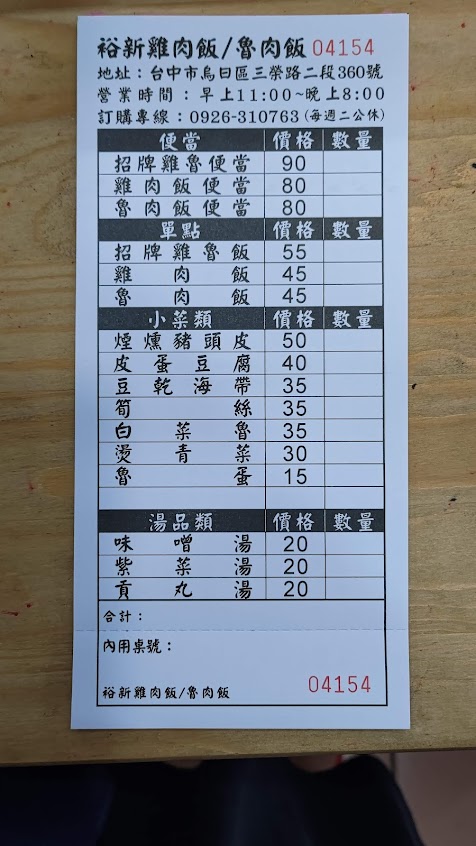 裕新雞肉飯/魯肉飯 04154
地址：台中市烏日區三榮路二段360號
營業時間：早上11:00~晚上8:00
訂購專線：0926-310763(每週二公休)
便當 價格 數量
招牌雞魯便當 90
雞肉飯便當 80
魯肉飯便當 80
單點 價格 數量
招牌雞魯飯 55
雞肉飯 45
魯肉飯 45
小菜類 價格 數量
煙燻豬頭皮 50
皮蛋豆腐 40
豆乾海帶 35
筍絲 35
白菜魯 35
燙青菜 30
魯蛋 15
湯品類 價格 數量
味噌湯 20
紫菜湯 20
貢丸湯 20
合計：
內用桌號：
裕新雞肉飯/魯肉飯 04154